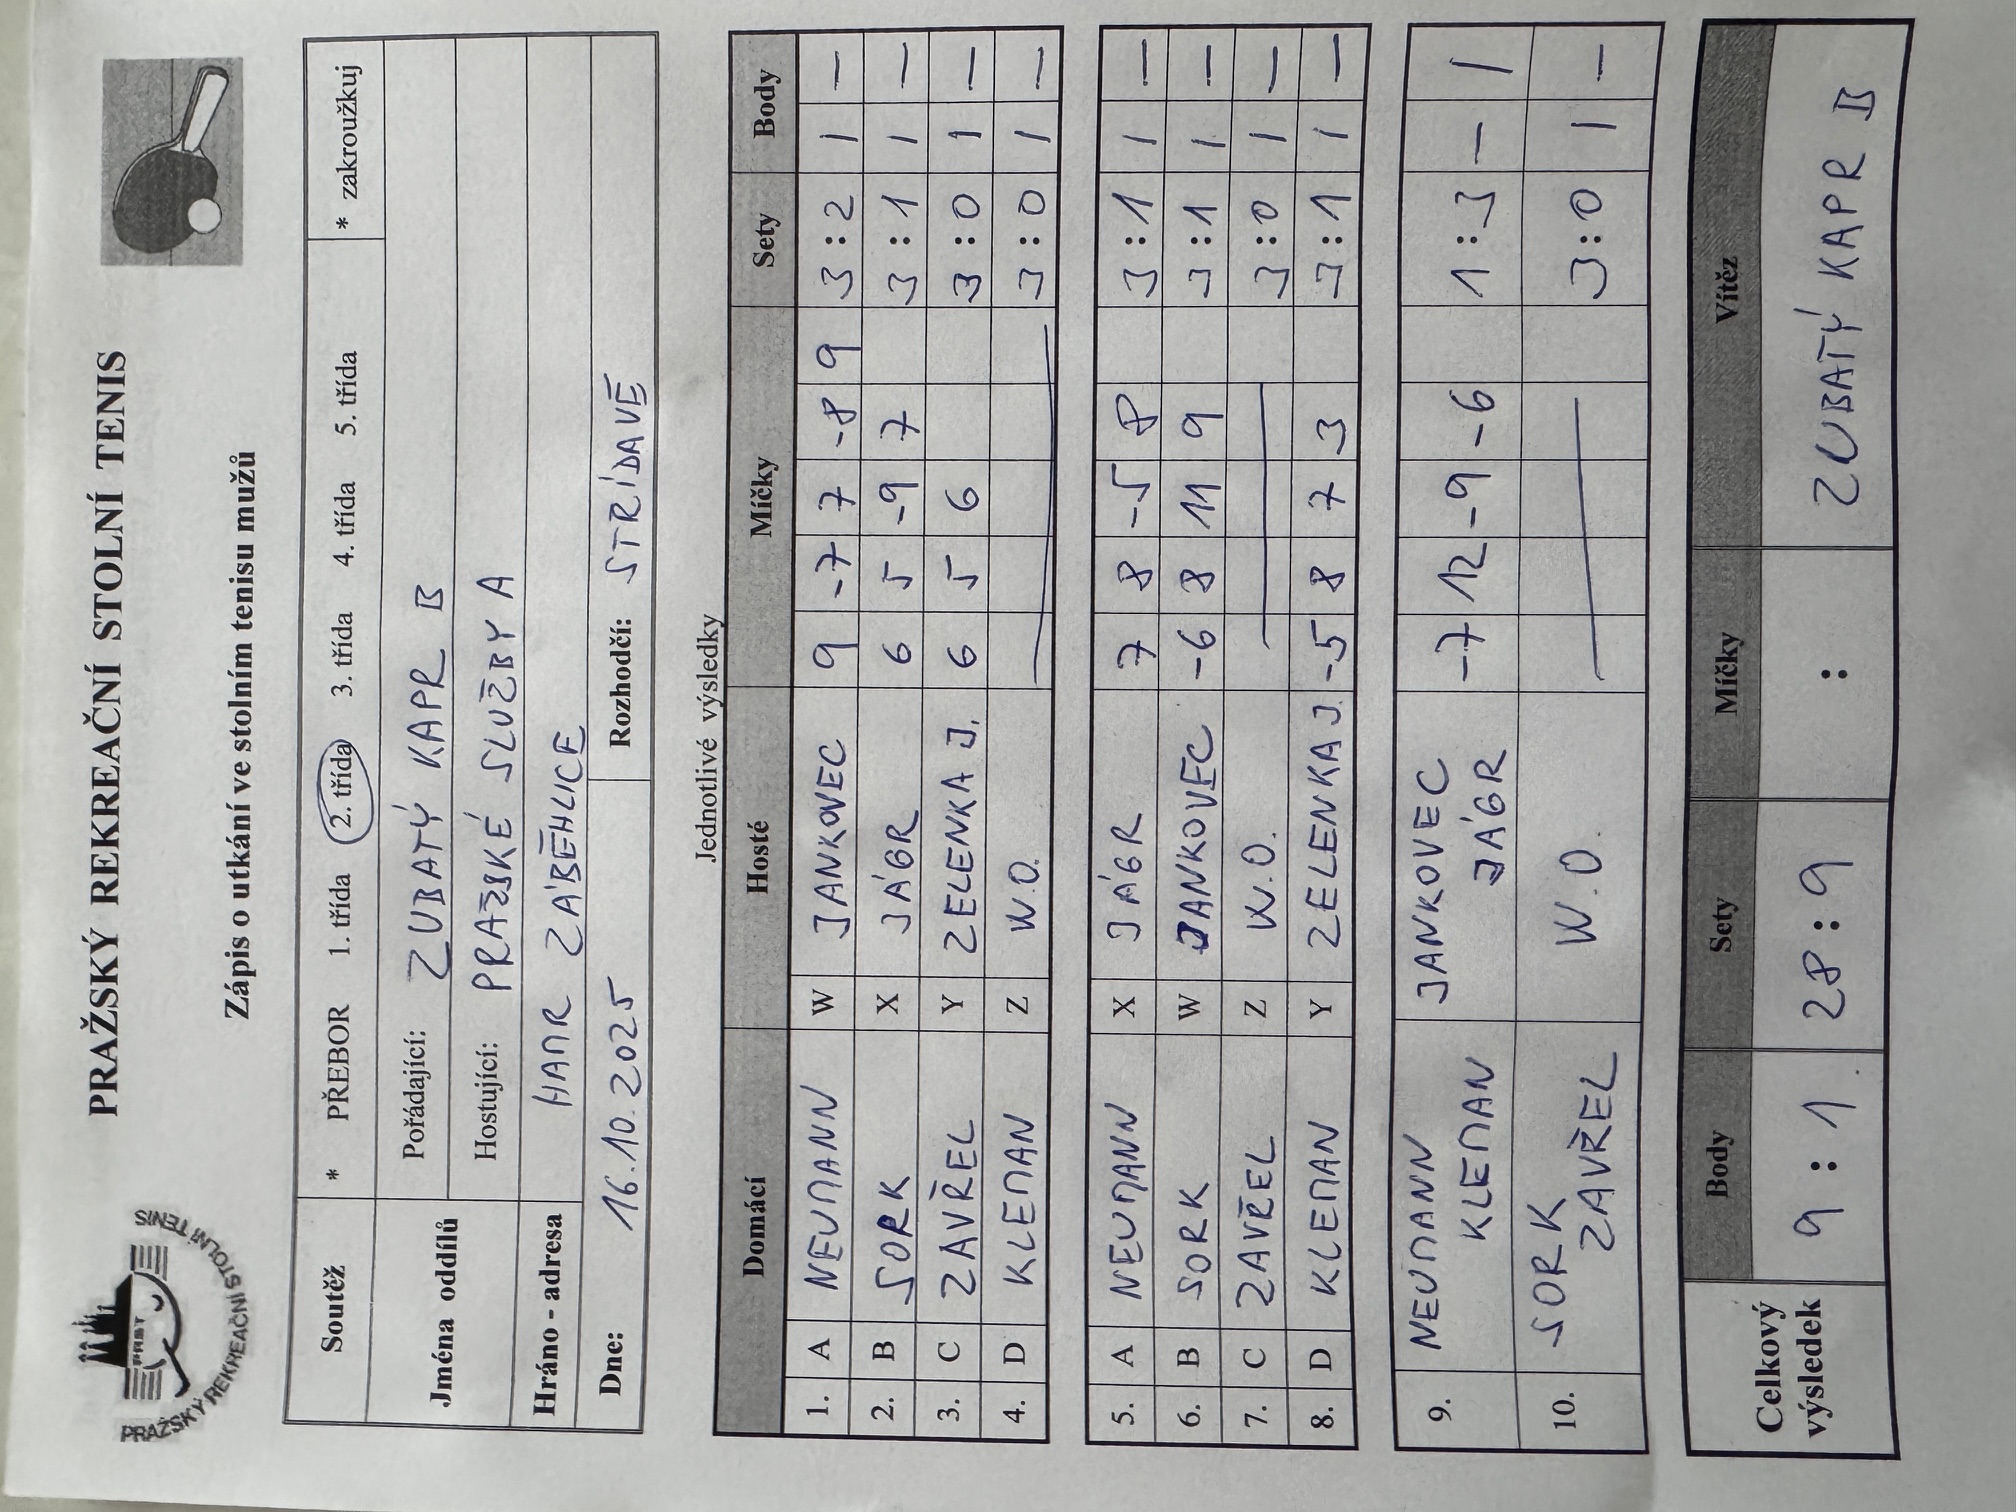 PRAŽSKÝ REKREAČNÍ STOLNÍ TENIS
PRST
PRAŽSKÝ REKREAČNÍ STOLNÍ TENIS
Zápis o utkání ve stolním tenisu mužů
Soutěž * PŘEBOR 1. třída 2. třída 3. třída 4. třída 5. třída * zakroužkuj
Jména oddílů Pořádající: ZUBATÝ KAPR B
Hostující: PRAŽSKÉ SLUŽBY A
Hráno - adresa HAMR ZÁBĚHLICE
Dne: 16.10.2025 Rozhodčí: STŘÍDAVĚ
Jednotlivé výsledky
Domácí Hosté Míčky Sety Body
1. A NEUMANN W JANKOVEC 9 -7 7 -8 9 3:2 1 —
2. B SORK X JÁGR 6 5 -9 7 3:1 1 —
3. C ZAVŘEL Y ZELENKA J. 6 5 6 3:0 1 —
4. D KLEMAN Z W.O. 3:0 1 —
5. A NEUMANN X JÁGR 7 8 -5 8 3:1 1 —
6. B SORK W JANKOVEC -6 8 11 9 3:1 1 —
7. C ZAVŘEL Z W.O. 3:0 1 —
8. D KLEMAN Y ZELENKA J. -5 8 7 3 3:1 1 —
9. NEUMANN JANKOVEC -7 12 -9 -6 1:3 — 1
KLEMAN JÁGR
10. SORK W.O. 3:0 1 —
ZAVŘEL
Celkový výsledek Body Sety Míčky Vítěz
9:1 28:9 : ZUBATÝ KAPR B